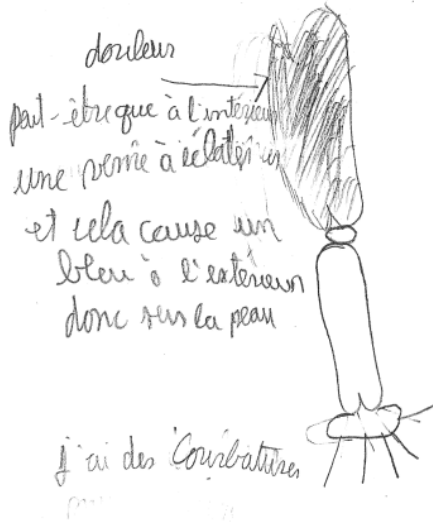 douleur
peut-être que à l'intérieur
une venne à éclater
et cela cause un
bleu à l'extérieur
donc sur la peau
j'ai des Courbatures